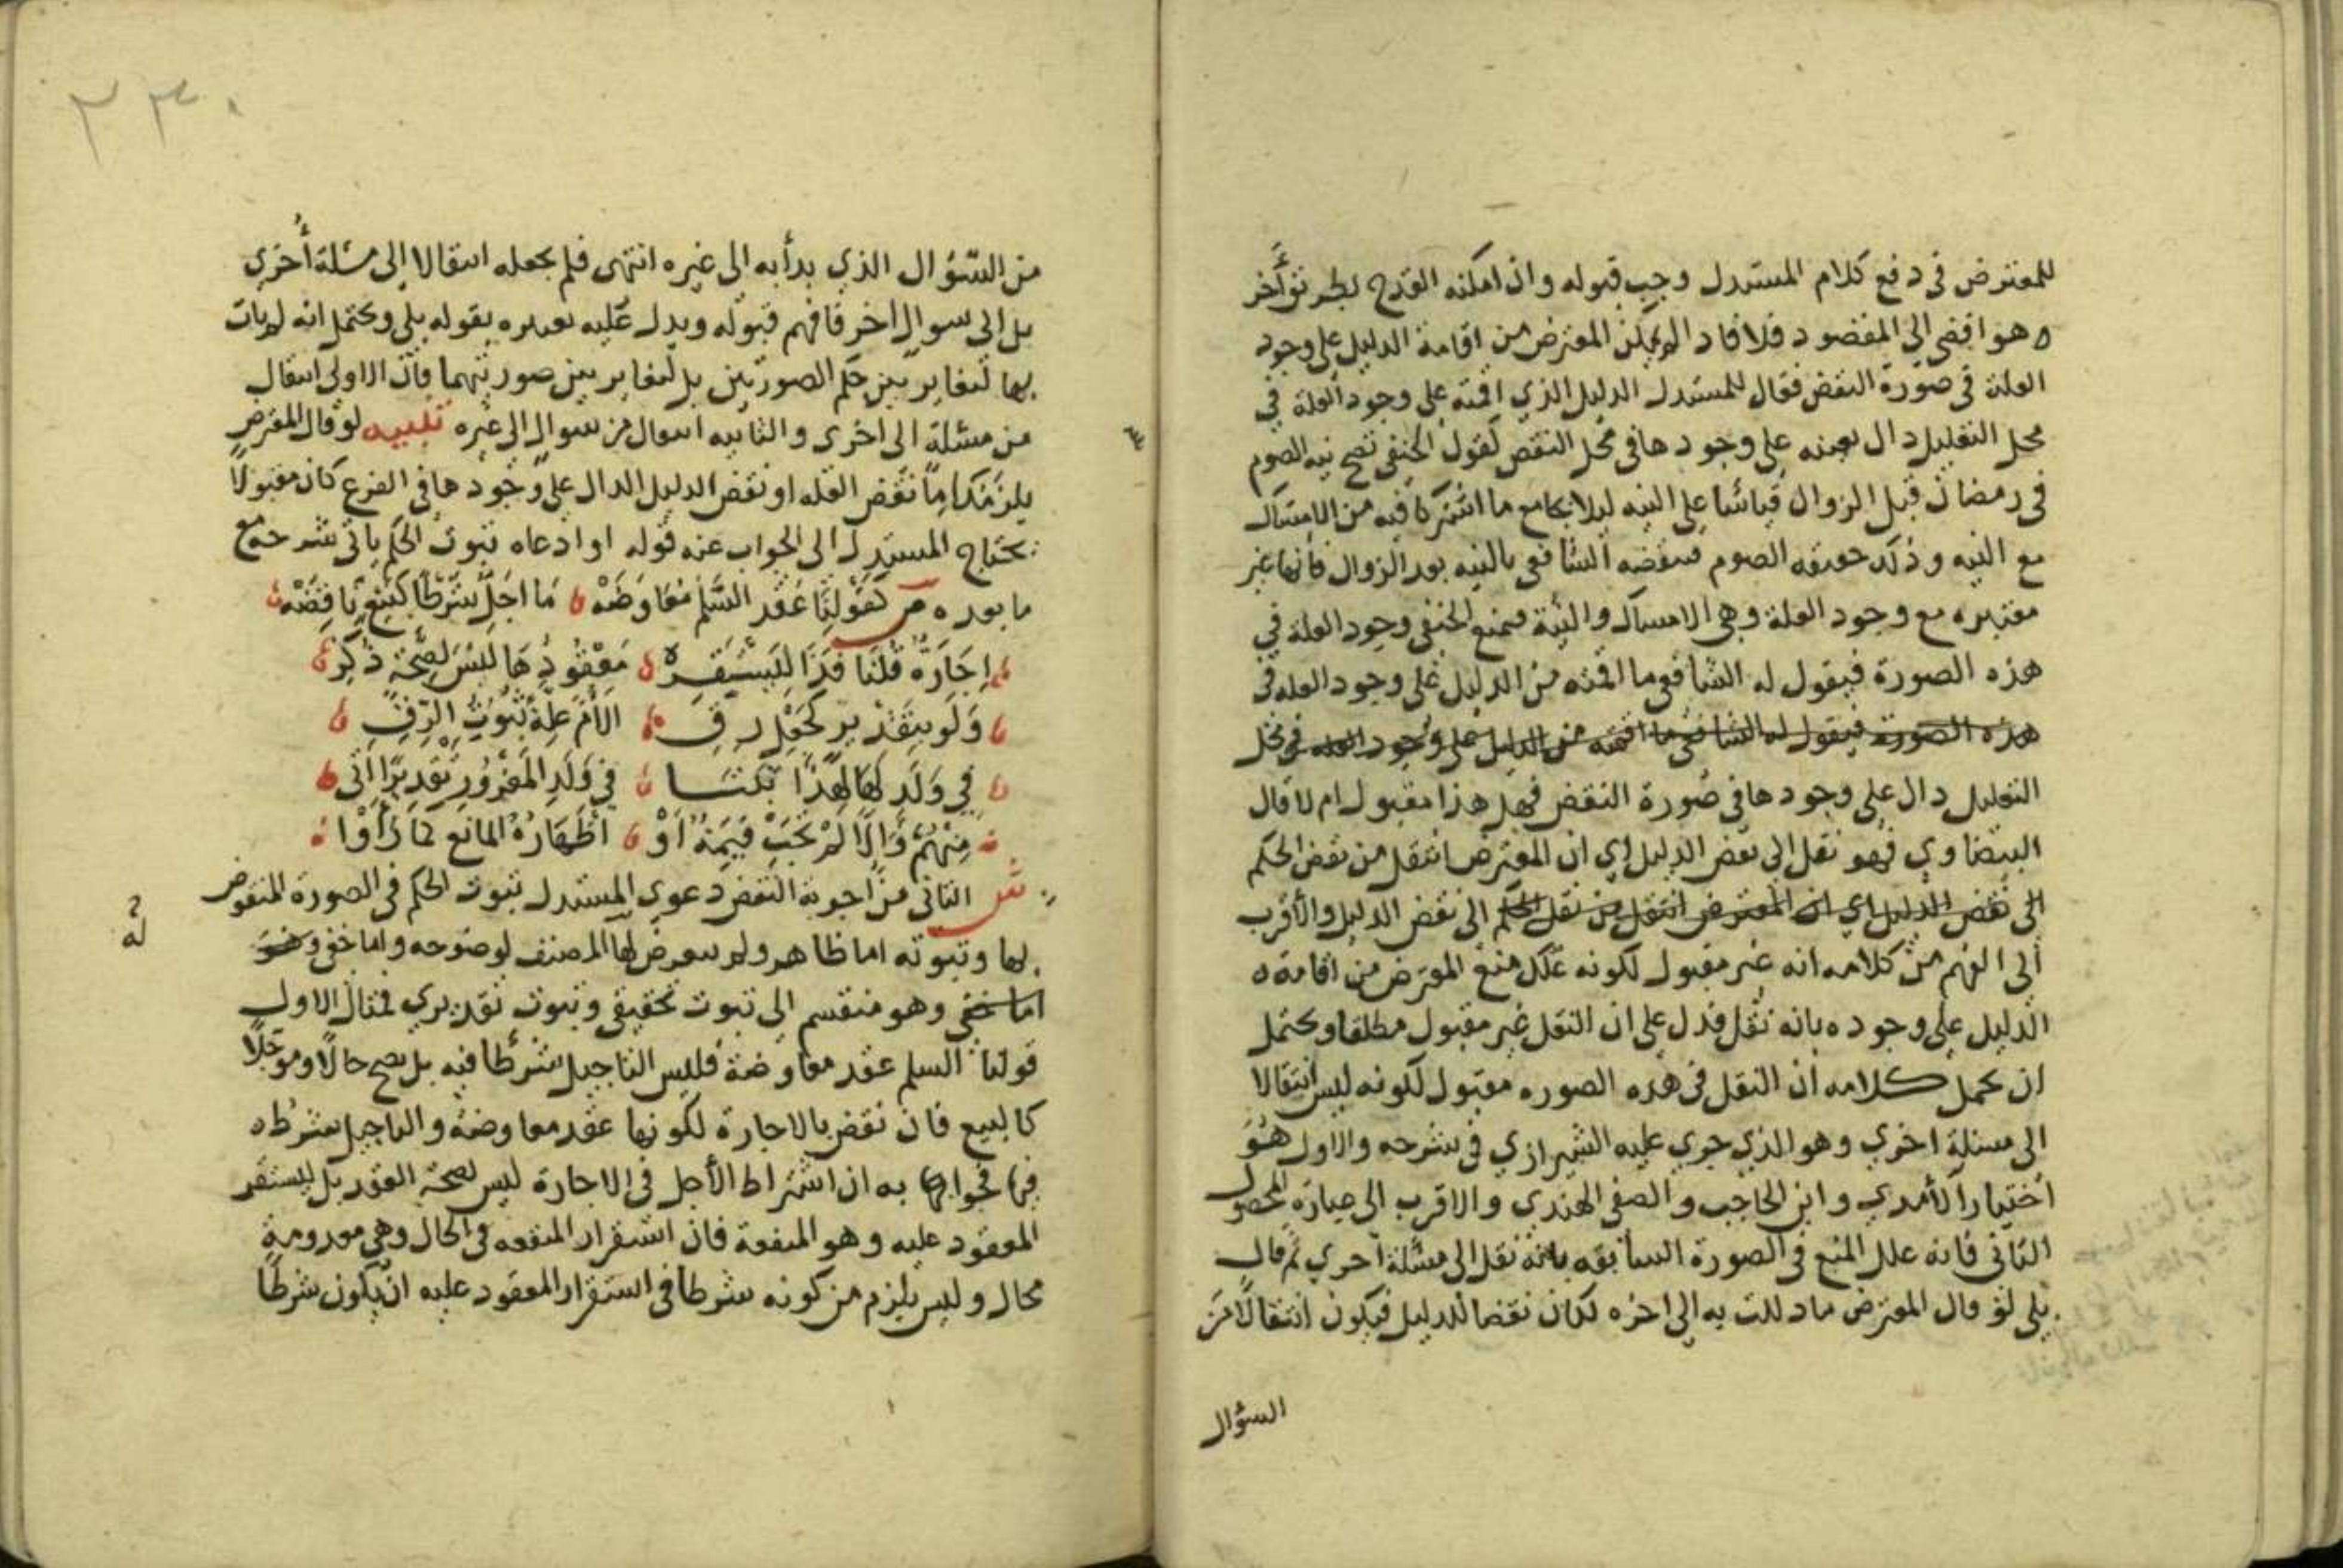 للمعترض في دفع كلام المستدل وجب قبوله وان امكنه القدح بطريق آخر
هو افضى الى المقصود فلا فاد المعترض من اقامة الدليل على وجود
العلة في صورة النقض فقال للمستدل الدليل الذي اقمته على وجود العلة في
محل التعليل دال بعينه على وجودها في محل النقض كقول الحنفي تصح نية الصوم
في رمضان قبل الزوال قياسا على النية ليلا بجامع ما اشتركا فيه من الامساك
مع النيه وذلك حقيقة الصوم فينقضه الشافعي بالنيه بعد الزوال فانها غير
معتبره مع وجود العلة وهي الامساك والنية فيمنع الحنفي وجود العلة في
هذه الصورة فيقول له الشافعي ما اقمته من الدليل على وجود العله في
هذه الصورة فيقول له الشافعي ما اقمته من الدليل على وجود العله في محل
التعليل دال على وجودها في صورة النقض فهل هذا مقبول ام لا قال
البيضاوي فهو نقل الى نقض الدليل اي ان المعترض انتقل من نقض الحكم
الى نقض الدليل اي ان المعترض انتقل من نقل الحكم الى نقض الدليل والأقرب
الى الفهم من كلامه انه غير مقبول لكونه علل منع المعترض من اقامة
الدليل على وجوده بانه نقل فدل على ان النقل غير مقبول مطلقا ويحتمل
ان يحمل كلامه ان النقل في هذه الصوره مقبول لكونه ليس انتقالا
الى مسئلة اخري وهو الذي جري عليه الشيرازي في شرحه والاول هو
اختيار الآمدي وابن الحاجب والصفي الهندي والاقرب الى عبارة المحصول
الثاني فانه علل المنع في الصورة السابقه بانه نقل الى مسئلة اخري ثم قال
بلى لو قال المعترض ما دللت به الى اخره لكان نقضا للدليل فيكون انتقالا من
السؤال
٢٣٠
من السؤال الذي بدأ به الى غيره انتهى فلم يجعله انتقالا الى مسئلة أخري
بل الى سوال اخر فافهم قبوله ويدل عليه تعبيره بقوله بلى ويحتمل انه لم يات
بها لتغاير بين حكم الصورتين بل لتغاير بين صورتيهما فان الاولى انتقال
من مسئلة الى اخرى والثانيه انتقال من سوال الى غيره تنبيه لو قال المعترض
يلزمك اما نقض العله او نقض الدليل الدال على وجودها في الفرع كان مقبولا
يحتاج المستدل الى الجواب عنه قوله او ادعاه ثبوت الحكم ياتي شرحه مع
ما بعده ص كقولنا عقد السلم معاوضه ما اجل شرطا كبيع ناقضه
إجارة قلنا فذا ليستقر معقودها ليس لصحة ذكر
ولو بتقدير كجعل رق الأم علة ثبوت الرق
في ولد لها لهذا ثبتا في ولد المغرور تقديرا اتى
منهم والا لم تجب قيمة او اظهاره المانع كما رأوا
ش الثاني من اجوبة النقض دعوى المستدل ثبوت الحكم في الصورة المنقوض
بها وثبوته اما ظاهر ولم يتعرض لها المصنف لوضوحه واما خفي وهو
اما خفي وهو منقسم الى ثبوت تحقيقي وثبوت تقديري فمثال الاول
قولنا السلم عقد معاوضة فليس التاجيل شرطا فيه بل يصح حالا ومؤجلا
كالبيع فان نقض بالاجارة لكونها عقد معاوضة والتاجيل شرط
فيها فجوابها به ان اشتراط الأجل في الاجارة ليس لصحة العقد بل ليستقر
المعقود عليه وهو المنفعة فان استقرار المنفعه في الحال وهي معدومة
محال وليس يلزم من كونه شرطا في استقرار المعقود عليه ان يكون شرطا